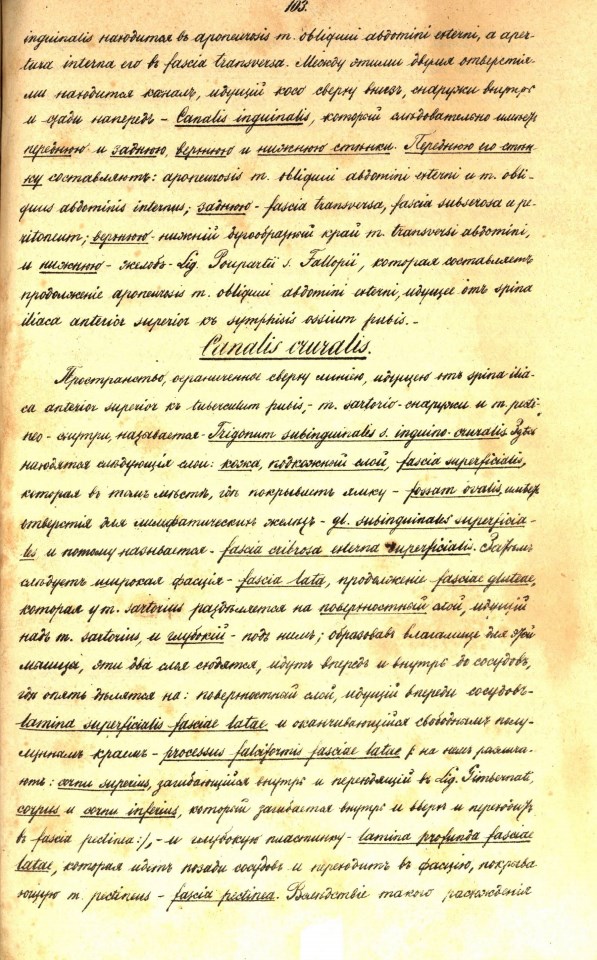 103.
inguinalis находится въ aponeurosis m. obliqui abdomini externi, а aper-
tura interna его въ fascia transversa. Между этими двумя отверстія-
ми находится каналъ, идущій косо сверху внизъ, снаружи внутрь
и сзади напередъ - Canalis inguinalis, который слѣдовательно имѣетъ
переднюю и заднюю, верхнюю и нижнюю стѣнки. Переднюю его стѣн-
ку составляютъ: aponeurosis m. obliqui abdomini externi и m. obli-
quus abdominis internus; заднюю - fascia transversa, fascia subserosa и pe-
ritoneum; верхнюю - нижній дугообразный край m. transversi abdomini,
и нижнюю - желобъ - Lig. Poupartii s. Fallopii, которая составляетъ
продолженіе aponeurosis m. obliqui abdomini externi, идущее отъ spina
iliaca anterior superior къ symphisis ossium pubis. -
Canalis cruralis.
Пространство, ограниченное сверху линіею, идущею отъ spina ilia-
ca anterior superior къ tuberculum pubis, - m. sartorio - снаружи и m. pecti-
neo - снутри, называется - Trigonum subinguinalis s. inguino-cruralis.
находятся слѣдующія слои: кожа, подкожный слой, fascia superficialis,
которая въ томъ мѣстѣ, гдѣ покрываетъ ямку - fossam ovalis, имѣетъ
отверстія для лимфатическихъ желѣзъ - gl. subinguinales superficia-
les и потому называется - fascia cribrosa externa superficialis. Затѣмъ
слѣдуетъ широкая фасція - fascia lata, продолженіе fasciae gluteae,
которая у m. sartorius раздѣляется на поверхностный слой, идущій
надъ m. sartorius, и глубокій - подъ нимъ; образовавъ влагалище для этой
мышцы, эти два слоя сходятся, идутъ впередъ и внутрь до сосудовъ,
гдѣ опять дѣлятся на: поверхностный слой, идущій впереди сосудовъ -
lamina superficialis fasciae latae и оканчивающійся свободнымъ полу-
луннымъ краемъ - processus falciformis fasciae latae /: на немъ различа-
ютъ: cornu superius, загибающійся внутрь и переходящій въ Lig. Gimbernati,
corpus и cornu inferius, который загибается внутрь и вверхъ и переходитъ
въ fascia pectinea :/, - и глубокую пластинку - lamina profunda fasciae
latae, которая идетъ позади сосудовъ и переходитъ въ фасцію, покрыва
ющую m. pectineus - fascia pectinea. Вслѣдствіе такого расхожденія